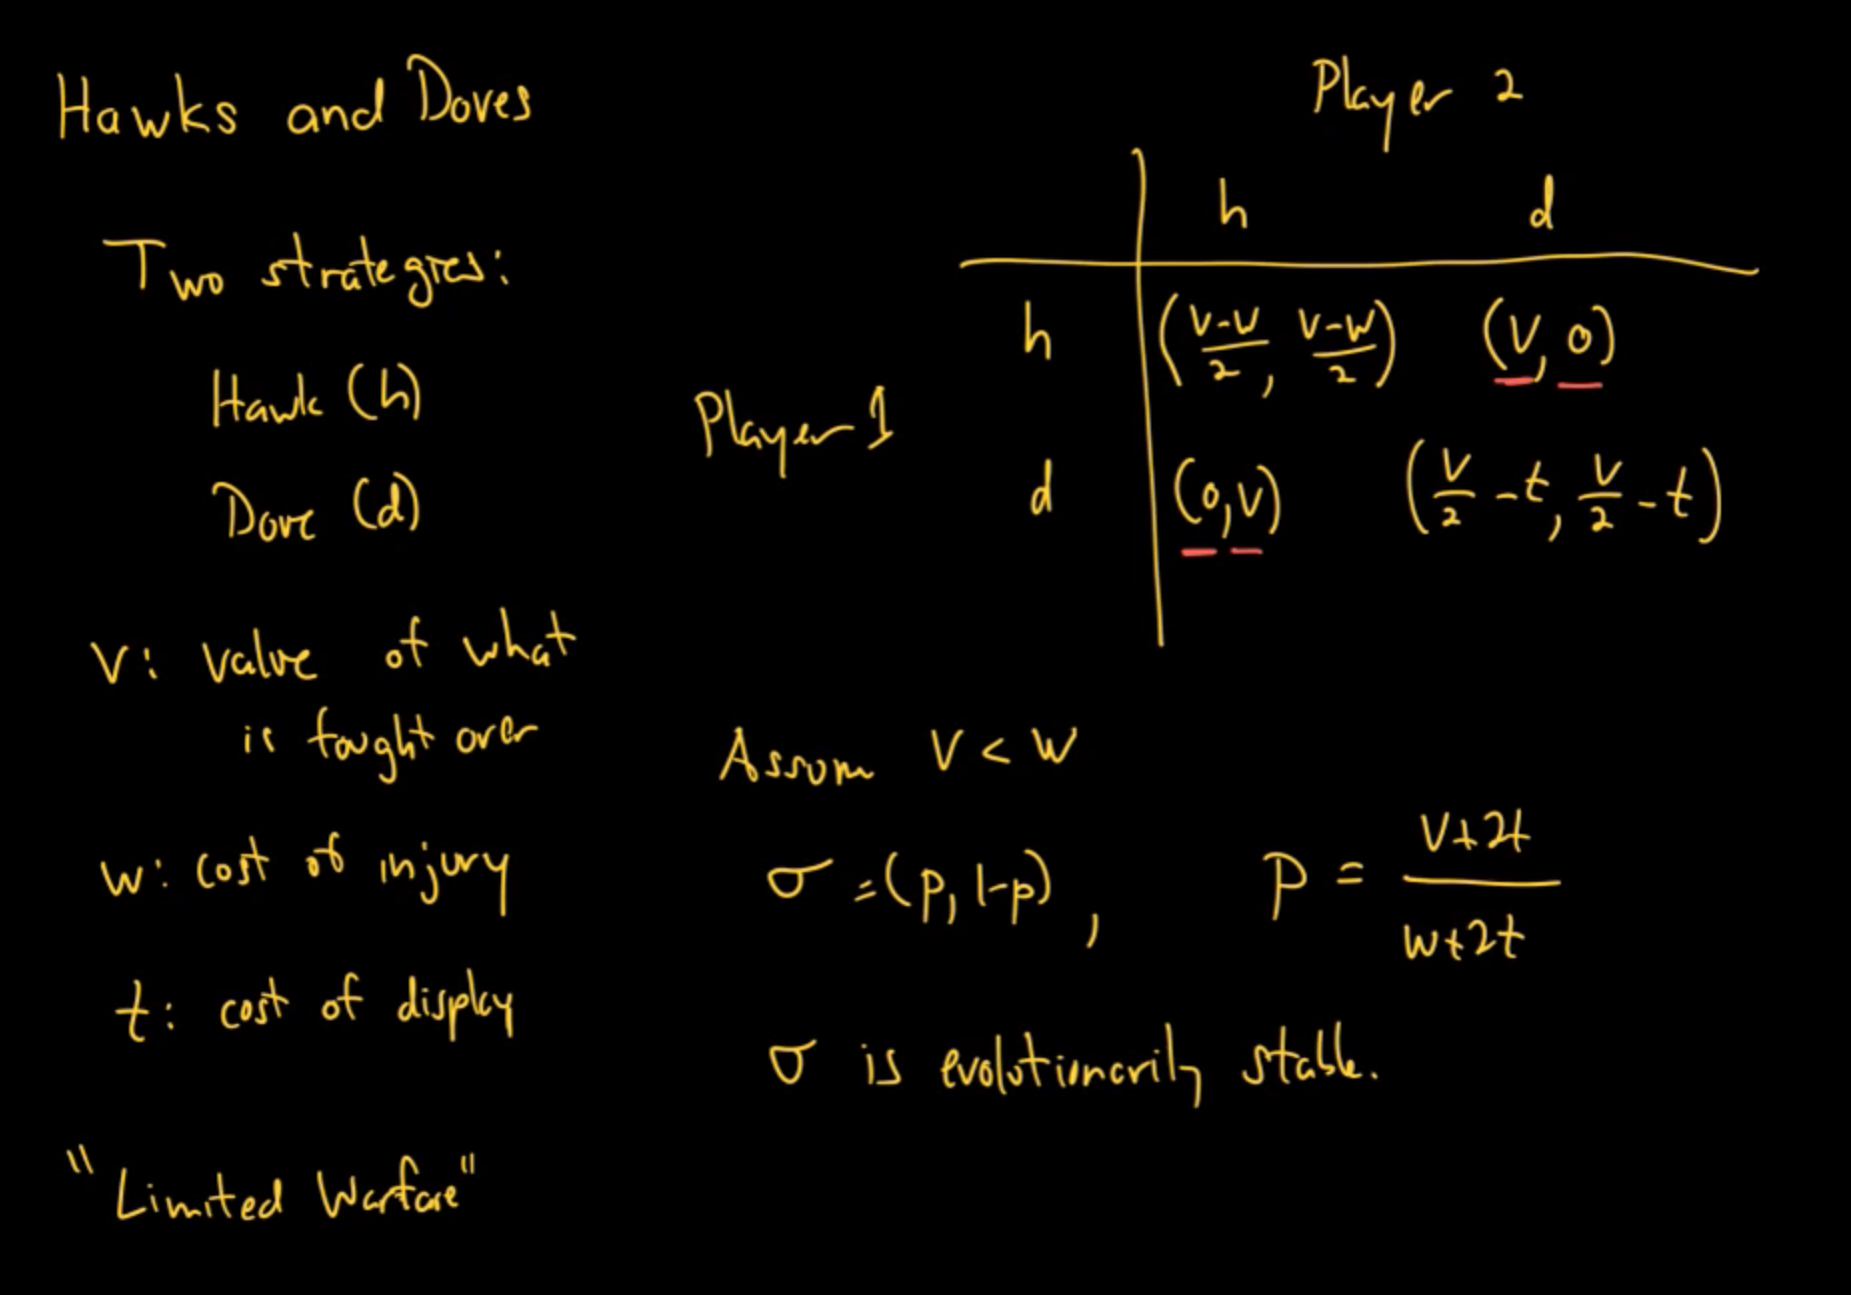 Hawks and Doves
Two strategies:
Hawk (h)
Dove (d)
V: value of what
is fought over
w: cost of injury
t: cost of display
"Limited Warfare"
Player 2
h d
h ((V-W)/2, (V-W)/2) (V, 0)
Player 1
d (0, V) (V/2 - t, V/2 - t)
Assum V < W
σ = (p, 1-p), P = (V+2t)/(W+2t)
σ is evolutionarily stable.